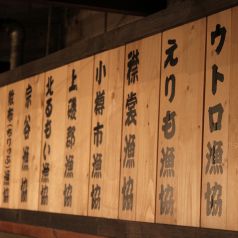 ウトロ漁協
えりも漁協
襟裳漁協
小樽市漁協
上磯郡漁協
北るもい漁協
宗谷漁協
散布(ちりっぷ)漁協